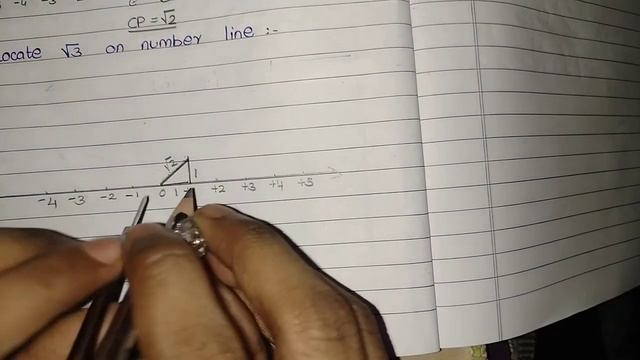 CP = √2
ocate √3 on number line :-
√2 1
-4 -3 -2 -1 0 1 +2 +3 +4 +5